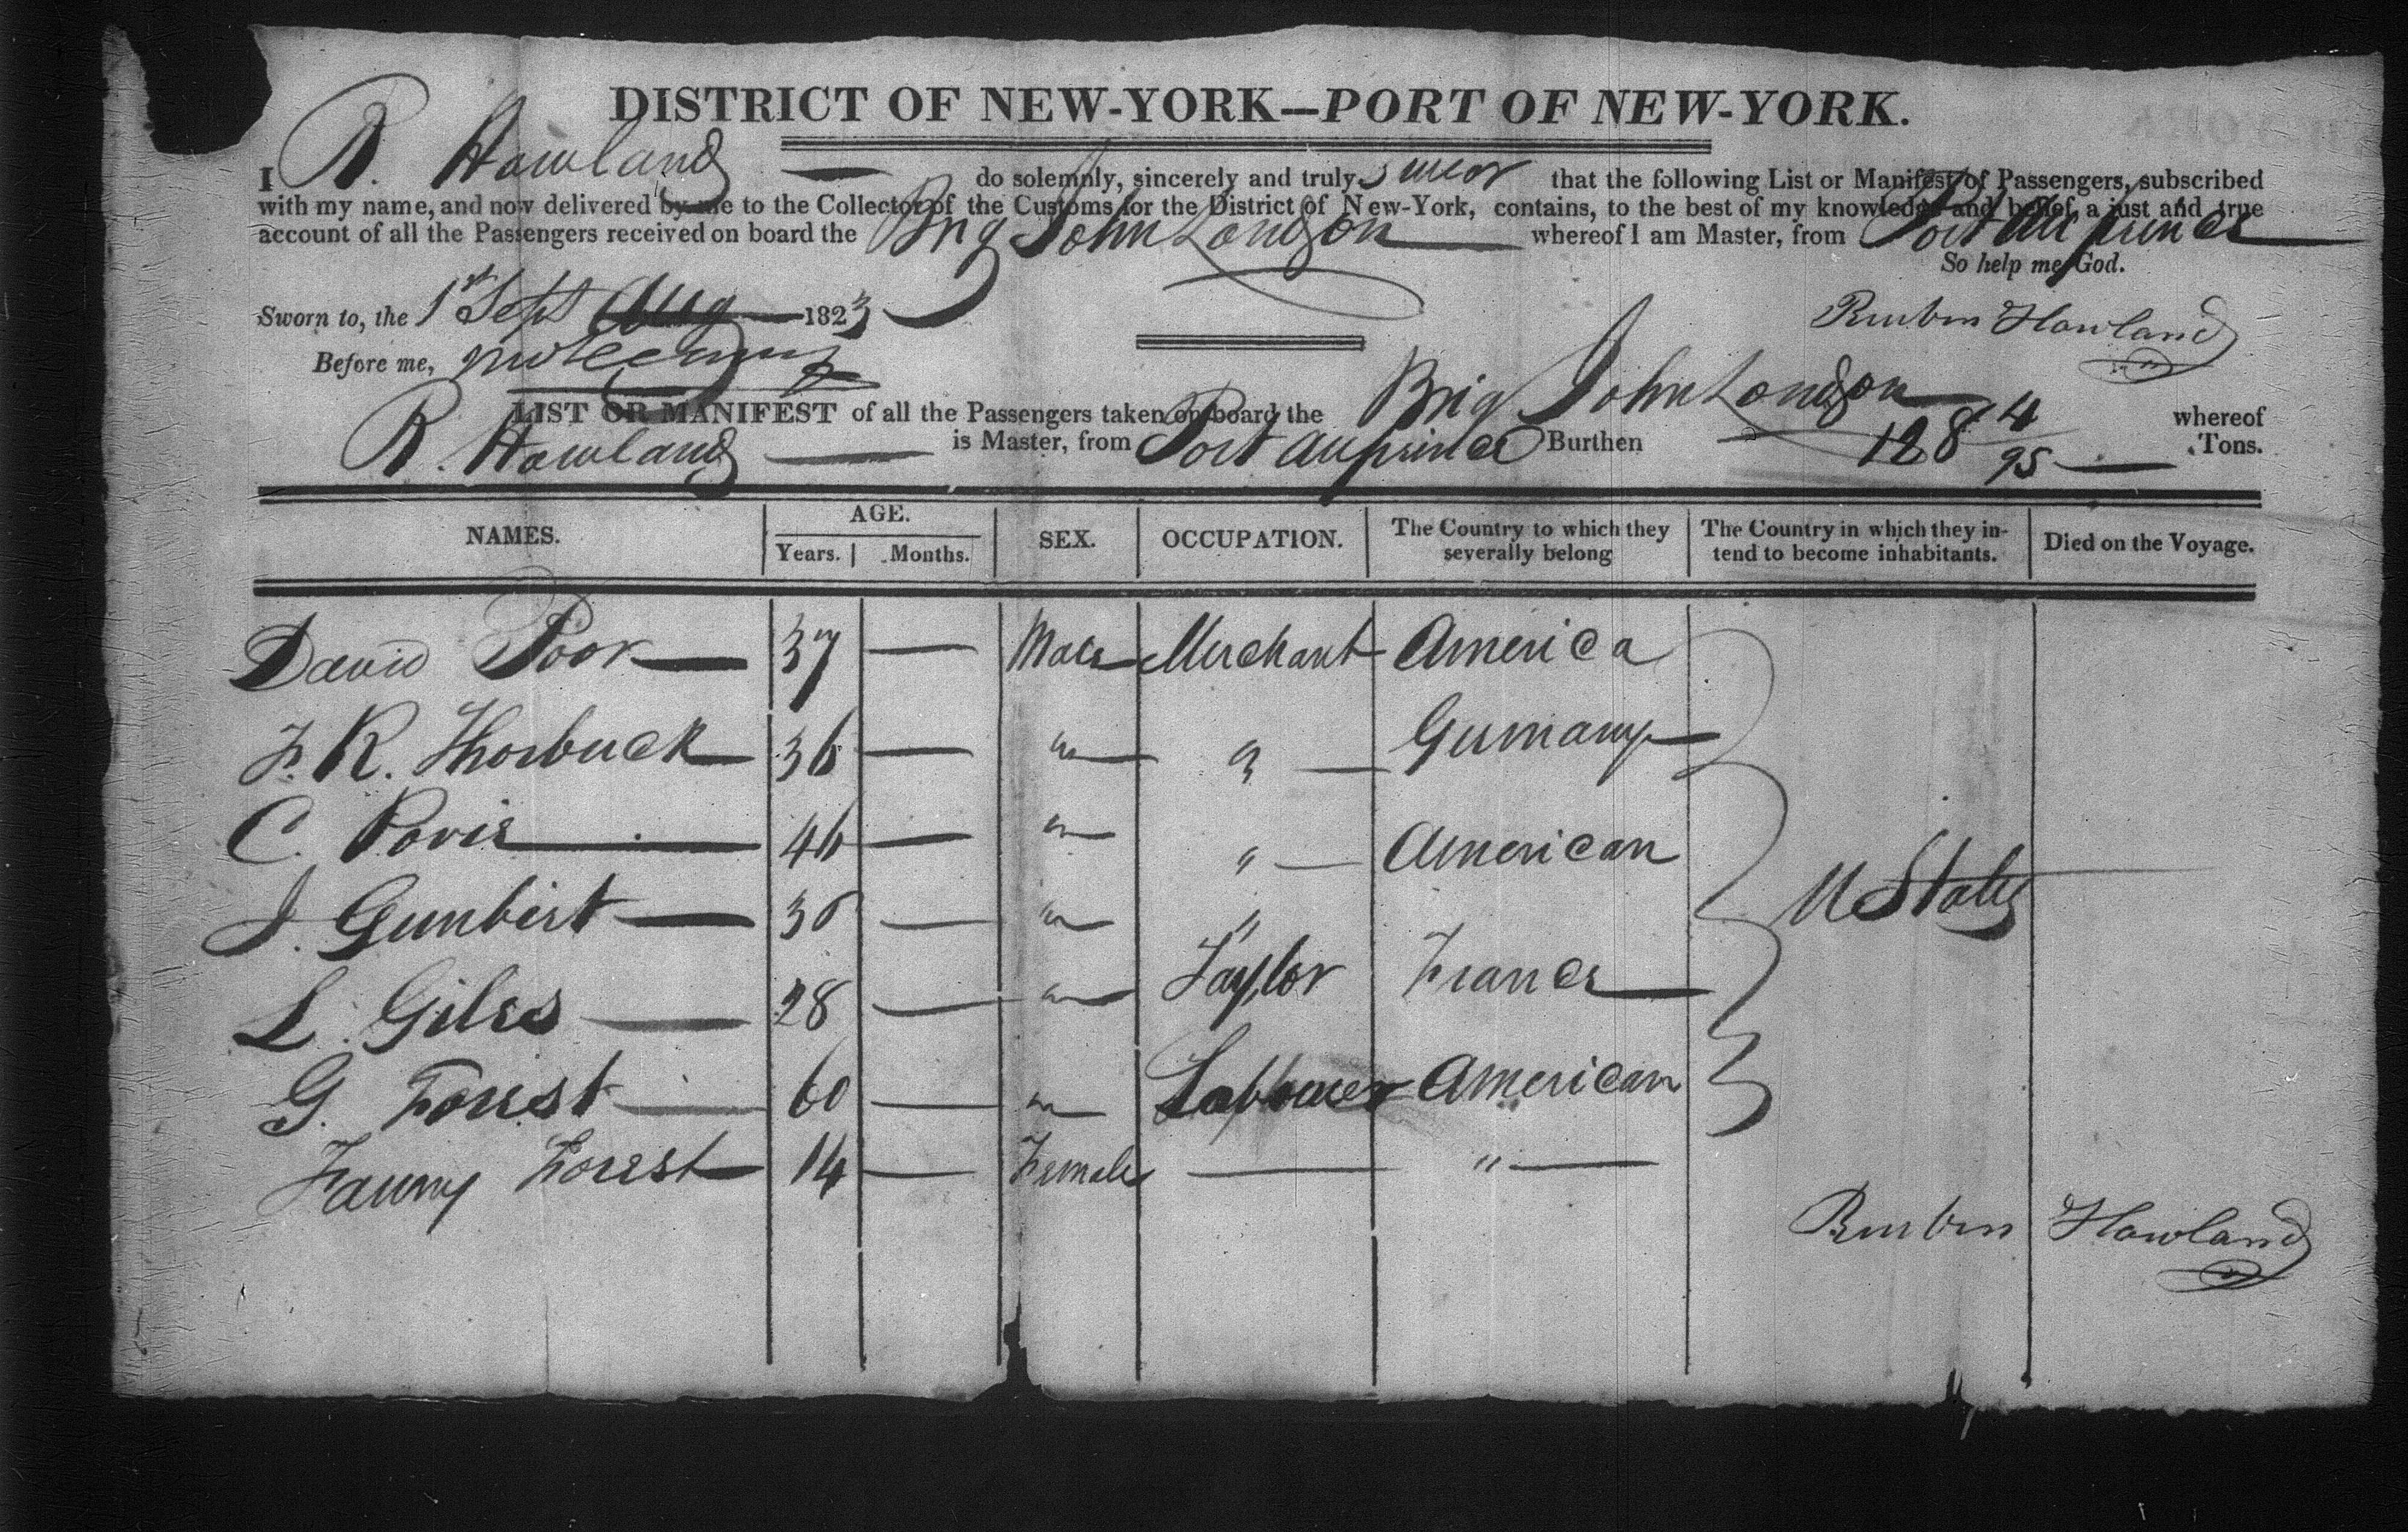 DISTRICT OF NEW-YORK—PORT OF NEW-YORK.
I R. Howland — do solemnly, sincerely and truly swear that the following List or Manifest of Passengers, subscribed
with my name, and now delivered by me to the Collector of the Customs for the District of New-York, contains, to the best of my knowledge and belief, a just and true
account of all the Passengers received on board the Brig John London whereof I am Master, from Port au prince
So help me God.
Sworn to, the 1st Sept Aug 1823
Reuben Howland
Before me,
LIST OR MANIFEST of all the Passengers taken on board the Brig John London whereof
R. Howland — is Master, from Port au prince Burthen 128 14/95 Tons.
NAMES. AGE. Years. Months. SEX. OCCUPATION. The Country to which they severally belong The Country in which they intend to become inhabitants. Died on the Voyage.
David Poor — 37 — Male Merchant America
F. R. Thorbuck — 36 — " " — Germany
C. Povie — 46 — " " — American
J. Gunbert — 30 — " " U States
L. Giles — 28 — " Taylor France
G. Forest — 60 — " Labourer American
Fanny Forest — 14 — Female — " —
Reuben Howland